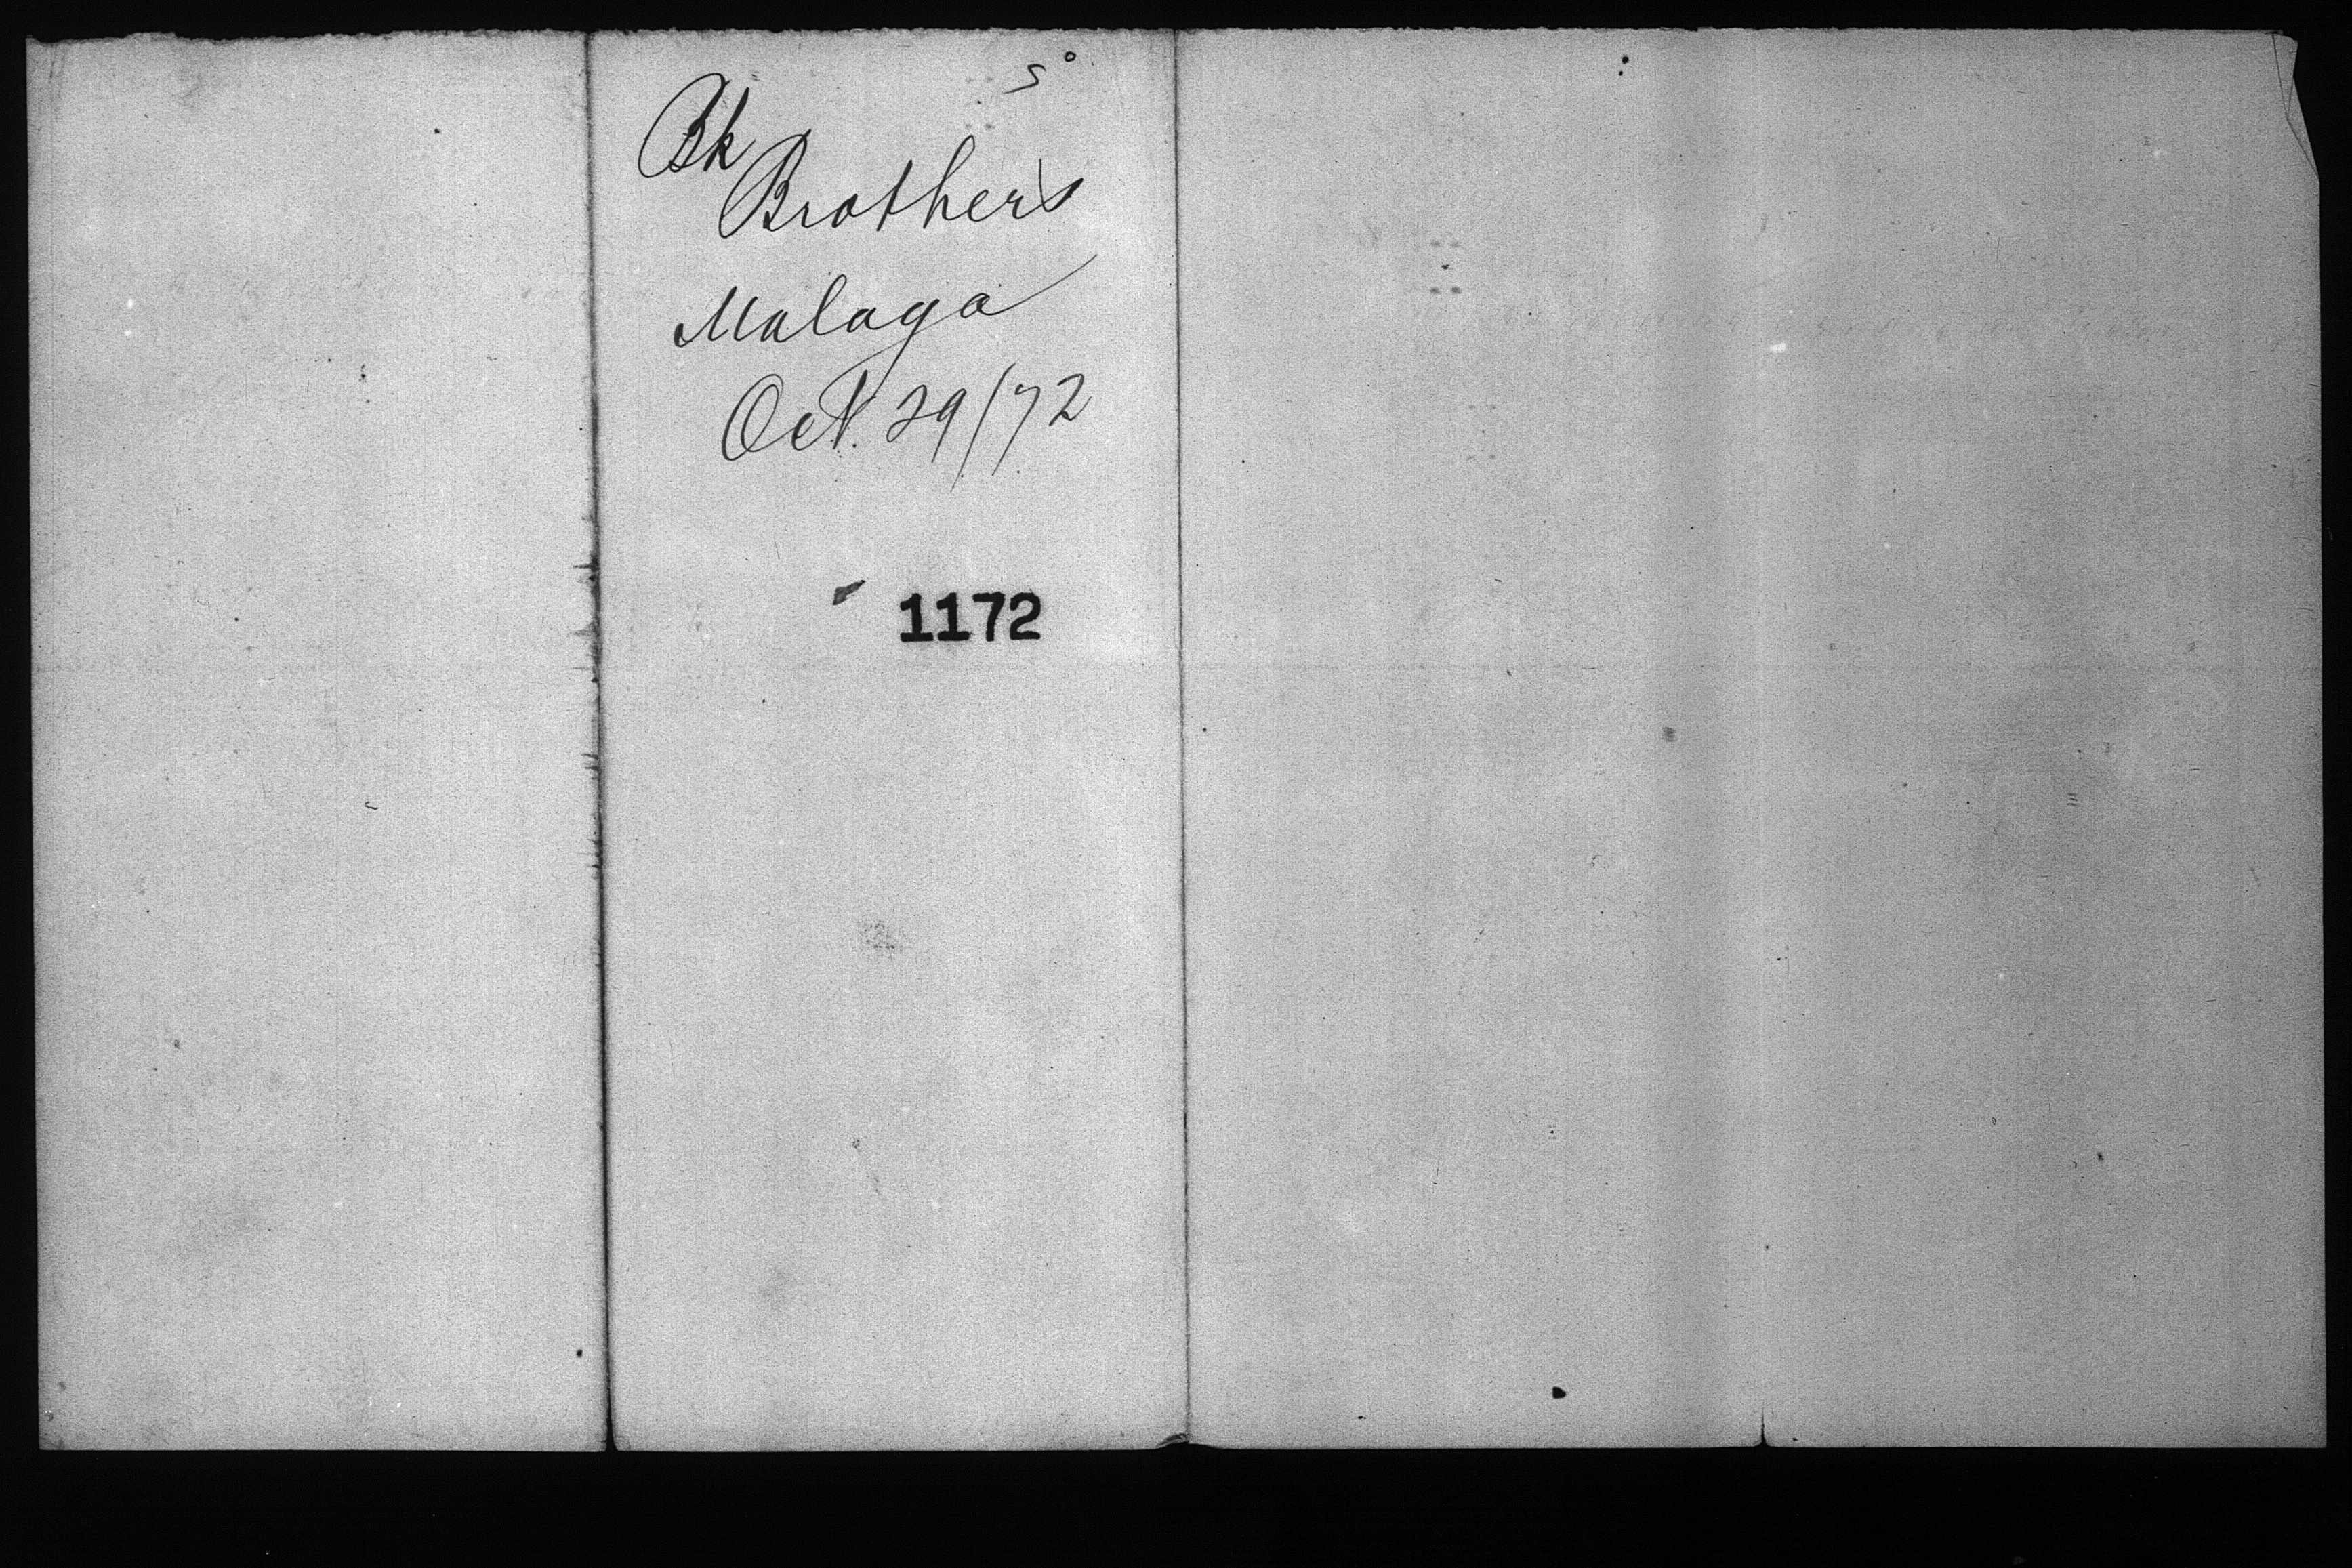 5°
Bk
Brothers
Malaga
Oct. 29/72
1172